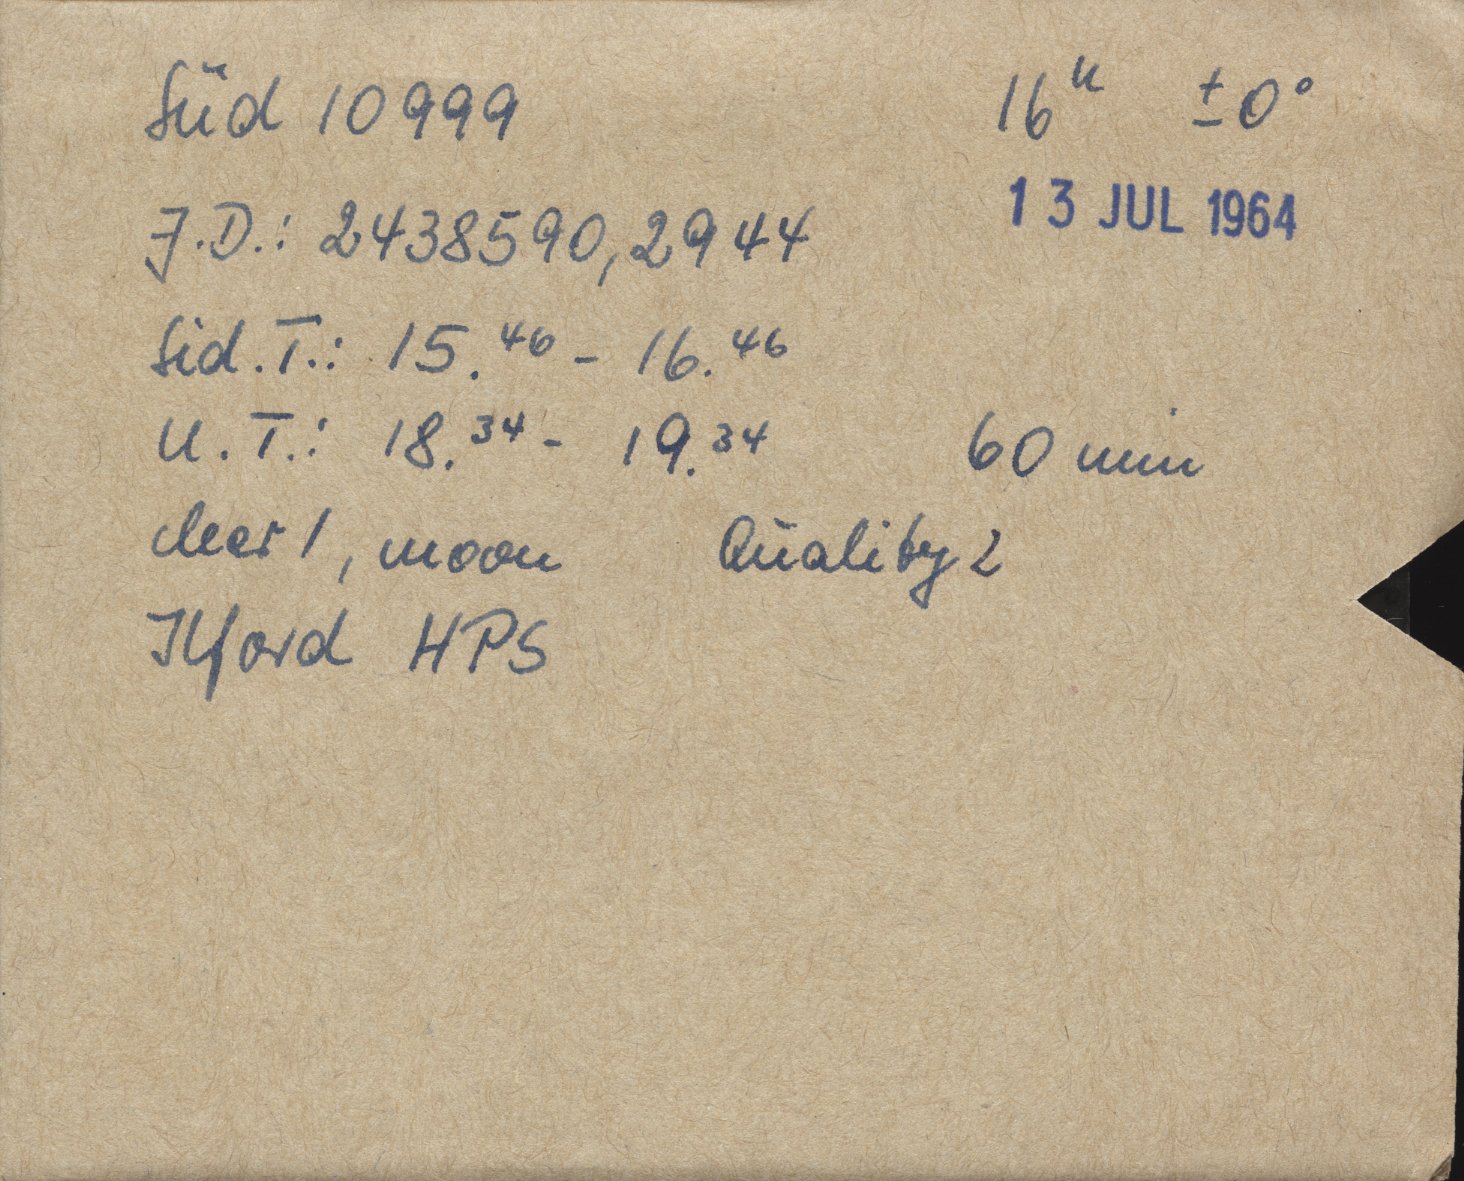 Süd 10999 16ʰ ±0°
13 JUL 1964
J.D.: 2438590,2944
Sid.T.: 15.⁴⁶ - 16.⁴⁶
U.T.: 18.³⁴ - 19.³⁴ 60 min
cleer 1, moon Quality 2
Ilford HPS